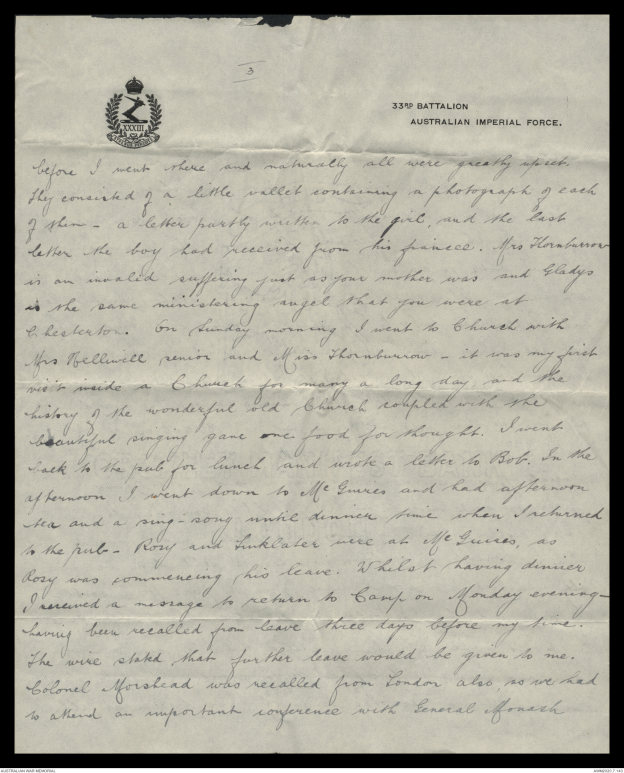 3
XXXIII
33RD BATTALION
AUSTRALIAN IMPERIAL FORCE.
before I went there and naturally all were greatly upset.
They consisted of a little wallet containing a photograph of each
of them – a letter partly written to the girl, and the last
letter the boy had received from his fiancee. Mrs Thornburrow
is an invalid suffering just as your mother was and Gladys
is the same ministering angel that you were at
Chesterton. On Sunday morning I went to Church with
Mrs Helliwell senior and Miss Thornburrow – it was my first
visit inside a Church for many a long day, and the
history of the wonderful old Church coupled with the
beautiful singing gave me food for thought. I went
back to the pub for lunch and wrote a letter to Bob. In the
afternoon I went down to McGuires and had afternoon
tea and a sing-song until dinner time when I returned
to the pub – Rosy and Linklater were at McGuires, as
Rosy was commencing his leave. Whilst having dinner
I received a message to return to Camp on Monday evening –
having been recalled from leave three days before my time.
The wire stated that further leave would be given to me.
Colonel Morshead was recalled from London also, as we had
to attend an important conference with General Monash
AUSTRALIAN WAR MEMORIAL